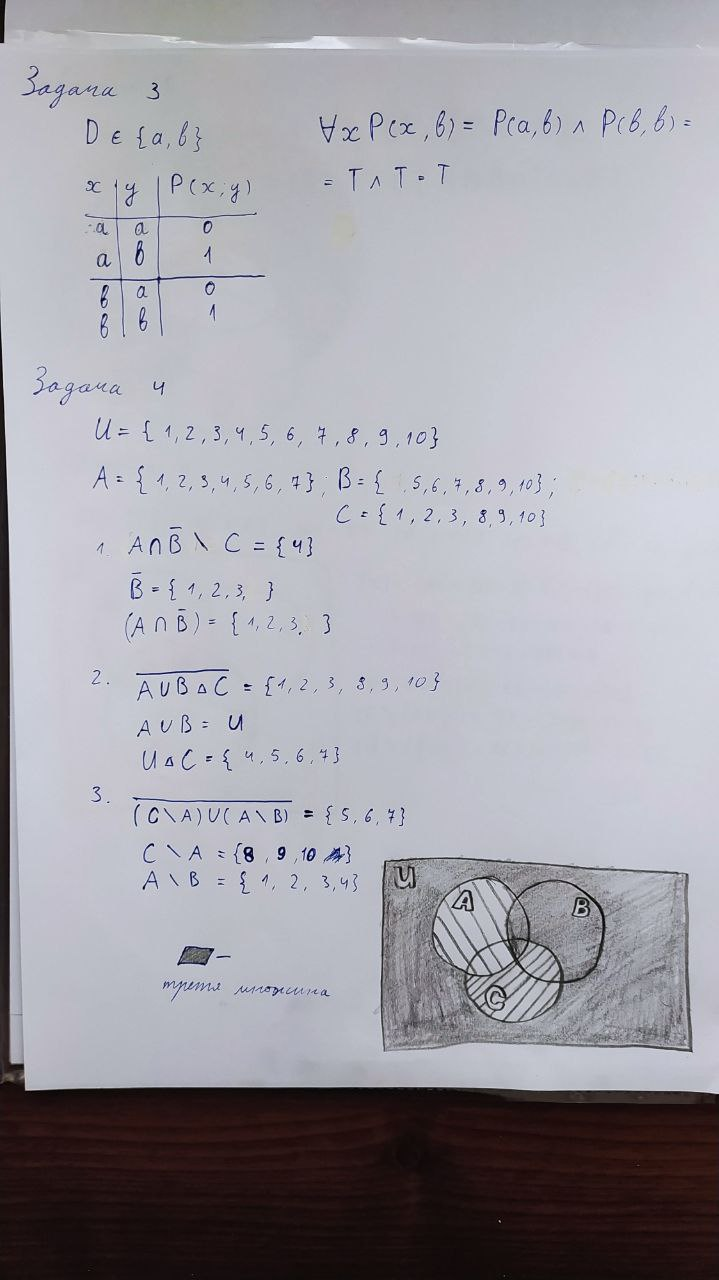 Задача 3
D ∈ {a, b}
∀x P(x, b) = P(a, b) ∧ P(b, b) =
= T ∧ T = T
x y P(x; y)
a a 0
a b 1
b a 0
b b 1
Задача 4
U = { 1, 2, 3, 4, 5, 6, 7, 8, 9, 10}
A = { 1, 2, 3, 4, 5, 6, 7}; B = { 5, 6, 7, 8, 9, 10};
C = { 1, 2, 3, 8, 9, 10}
1. A∩B̅ \ C = {4}
B̅ = { 1, 2, 3, }
(A ∩ B̅) = { 1, 2, 3, }
2. \overline{A∪B △ C} = {1, 2, 3, 8, 9, 10}
A ∪ B = U
U △ C = { 4, 5, 6, 7}
3. \overline{(C \ A) ∪ (A \ B)} = { 5, 6, 7}
C \ A = {8, 9, 10 }
A \ B = { 1, 2, 3, 4}
U
A
B
C
– третя множина